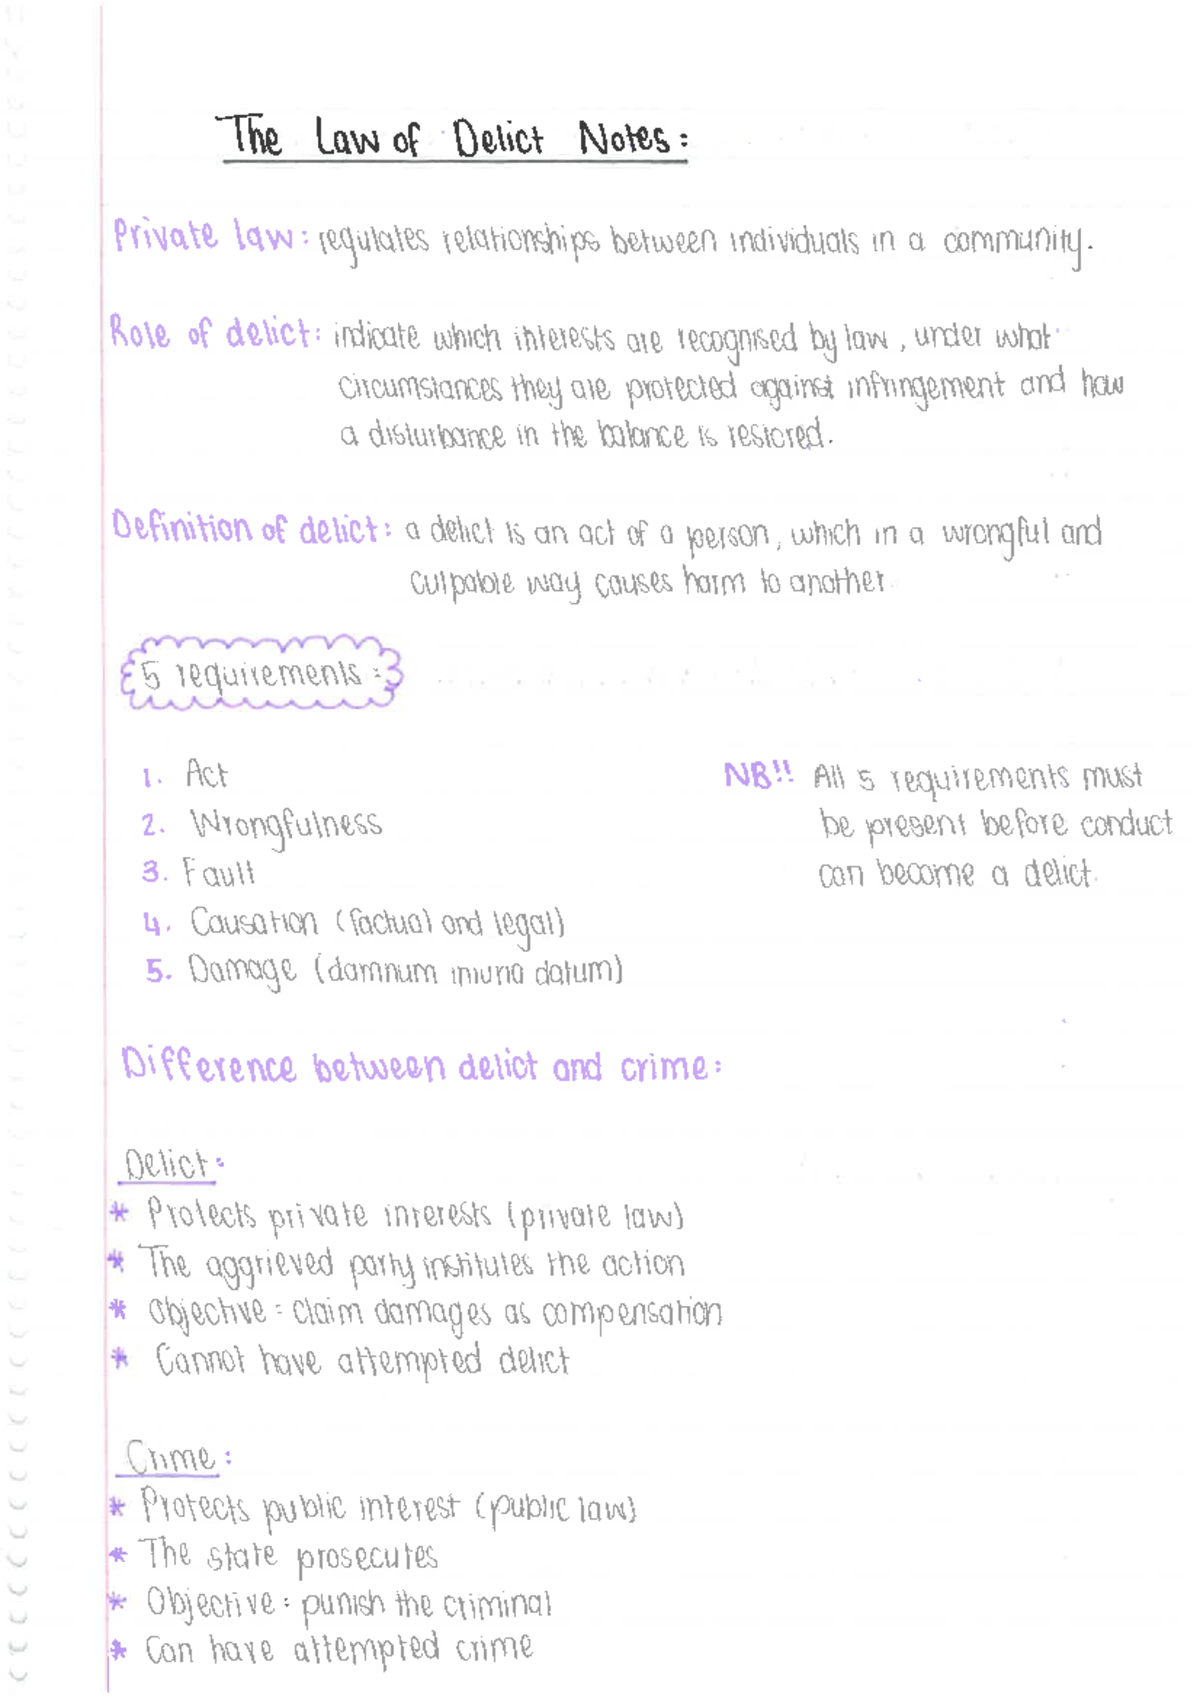 The Law of Delict Notes:
Private law: regulates relationships between individuals in a community.
Role of delict: indicate which interests are recognised by law, under what
circumstances they are protected against infringement and how
a disturbance in the balance is restored.
Definition of delict: a delict is an act of a person, which in a wrongful and
culpable way causes harm to another
5 requirements:
1. Act
2. Wrongfulness
3. Fault
4. Causation (factual and legal)
5. Damage (damnum iniuria datum)
NB!! All 5 requirements must
be present before conduct
can become a delict.
Difference between delict and crime:
Delict:
* Protects private interests (private law)
* The aggrieved party institutes the action
* Objective: claim damages as compensation
* Cannot have attempted delict
Crime:
* Protects public interest (public law)
* The state prosecutes
* Objective: punish the criminal
* Can have attempted crime